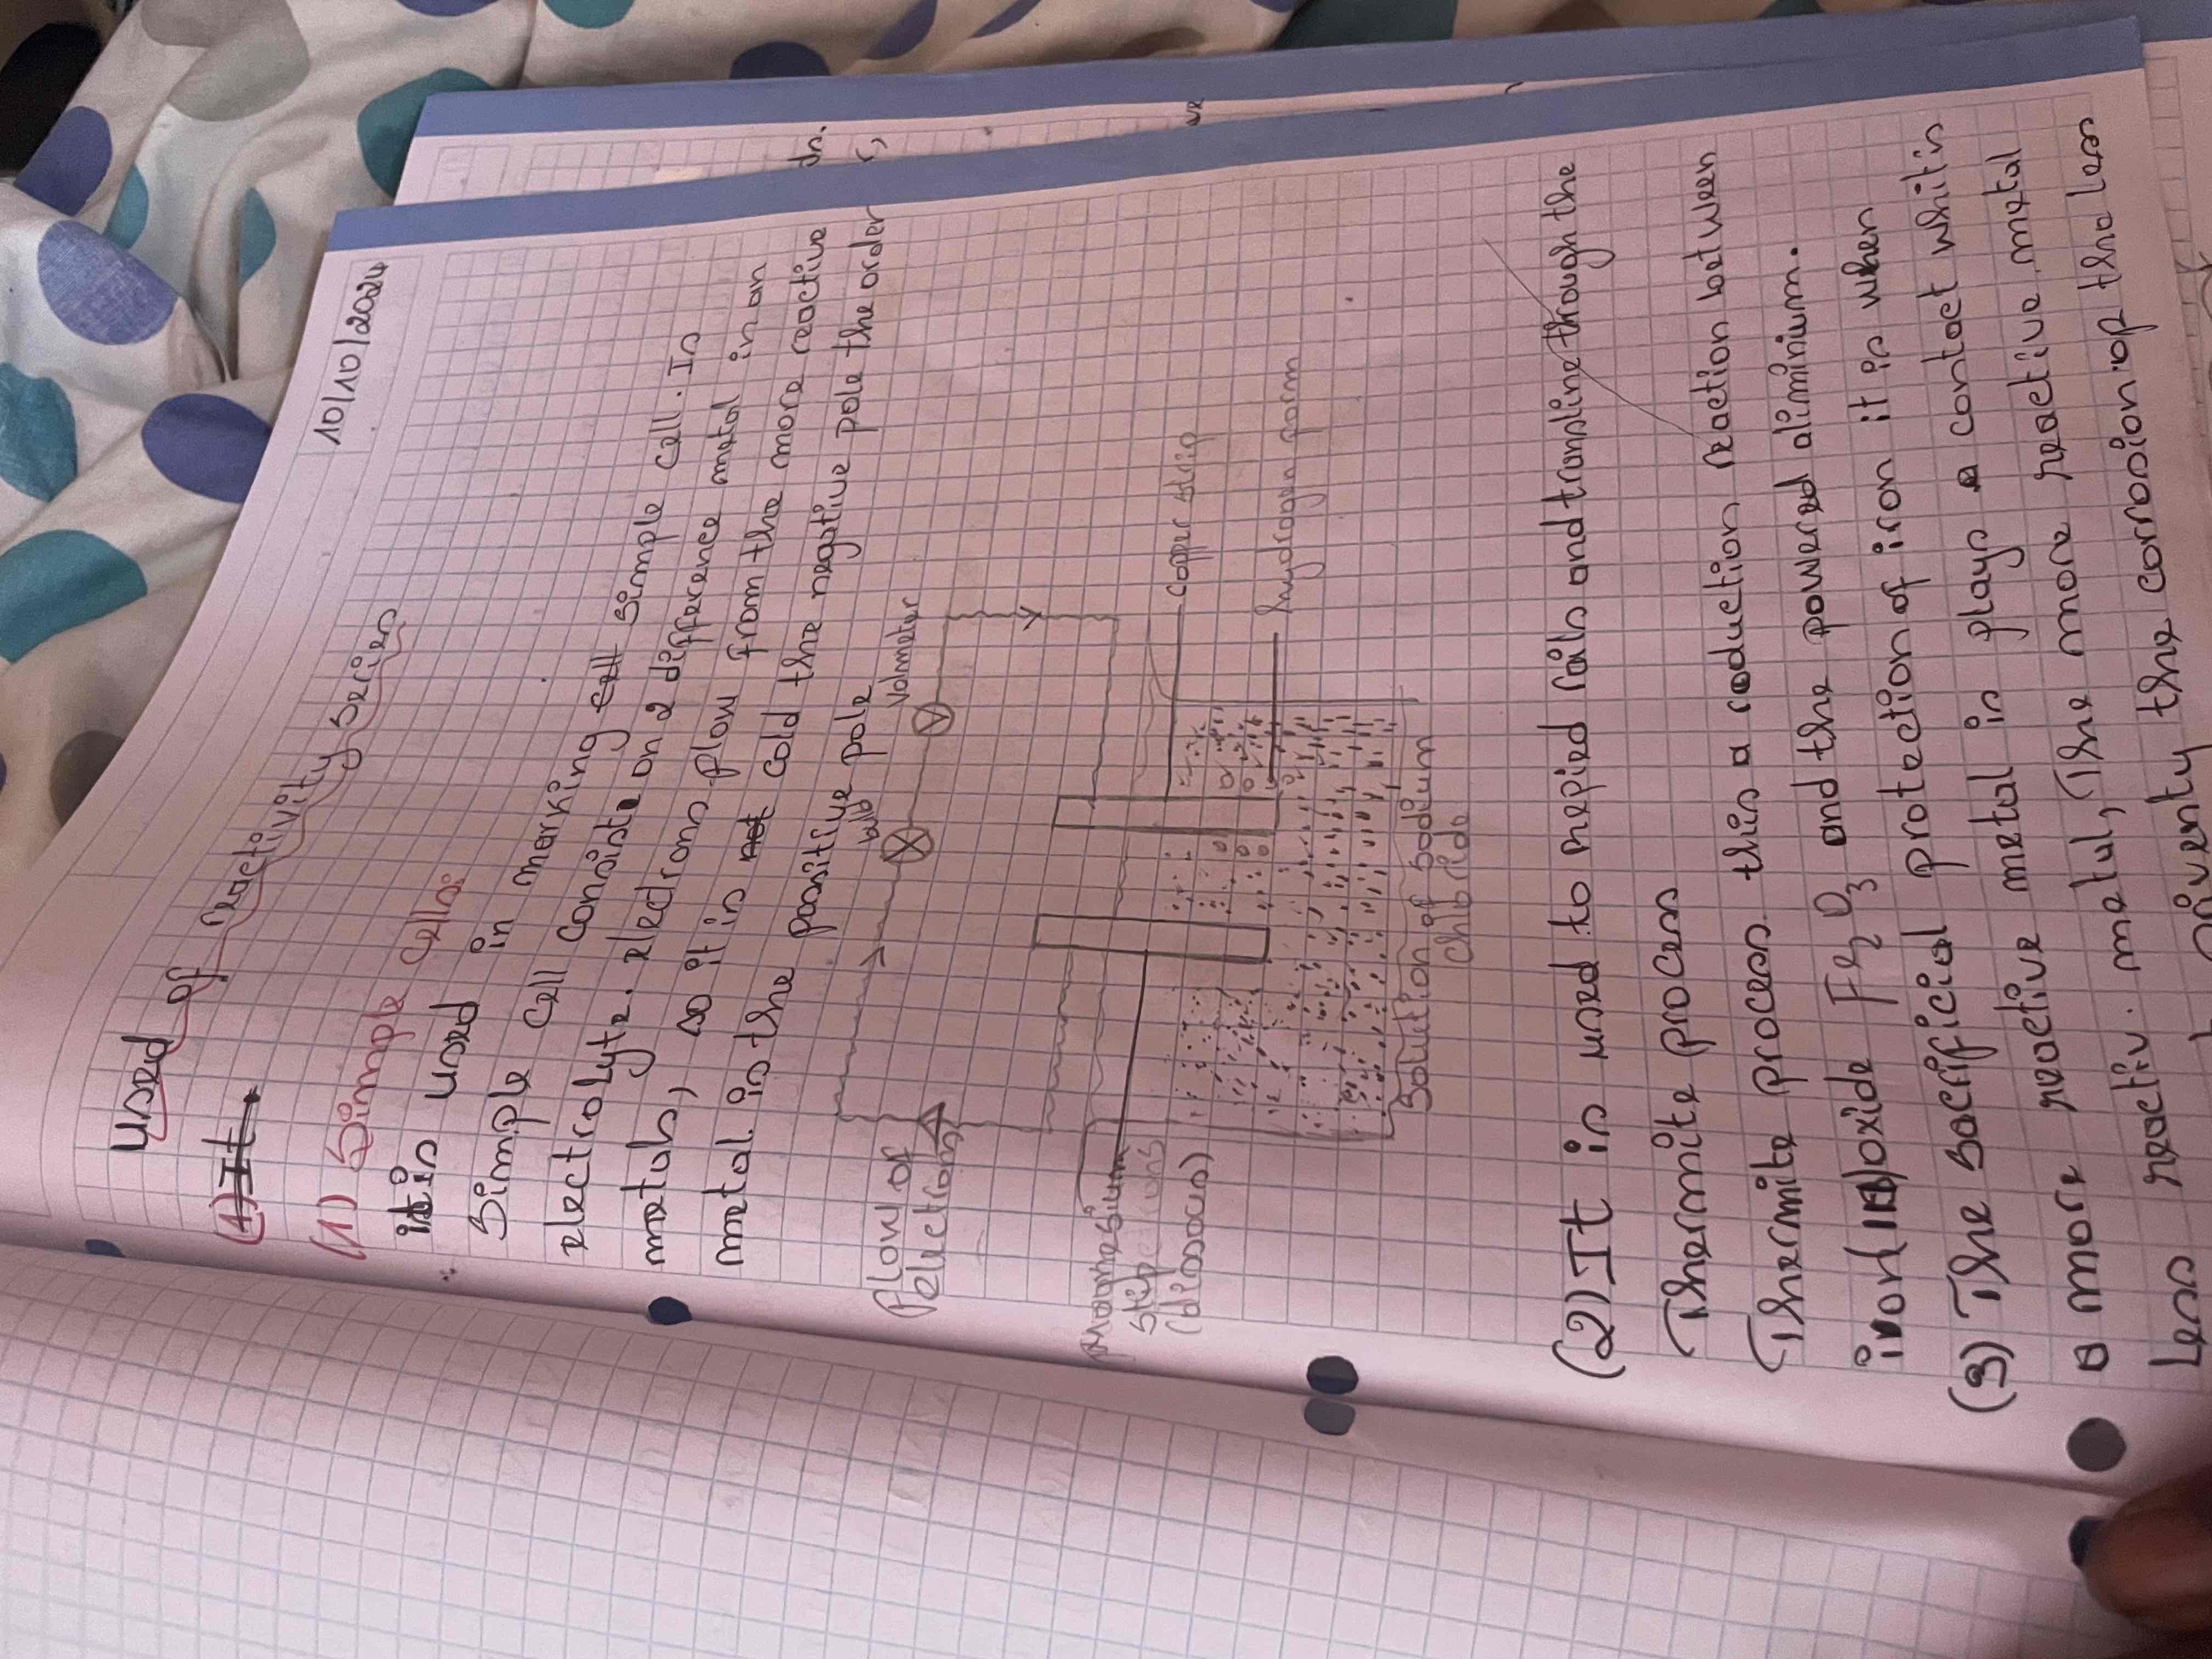 10/10/2024
used of reactivity series
(1) It
(1) Simple cells:
it is used in marking cell simple cell. In
Simple cell consiste on 2 difference metal in an
electrolyte. electrons flow from the more reactive
metals, so it is not cold the negative pole the order
metal is the positive pole
bulb
Volmeter
flow of
electrons
copper strip
hydrogen form
magnesium
strip
(dissous)
Solution of Sodium
Chloride
(2) It is used to repied rails and trampline through the
Thermite process
Thermite process this a reduction reaction between
iron(III)oxide Fe2O3 and the powered aliminium.
(3) The sacrificial protection of iron it is when
a more reactive metal is plays a contact whit is
less reactiv. metal, The more reactive metal
the corrosion of the less